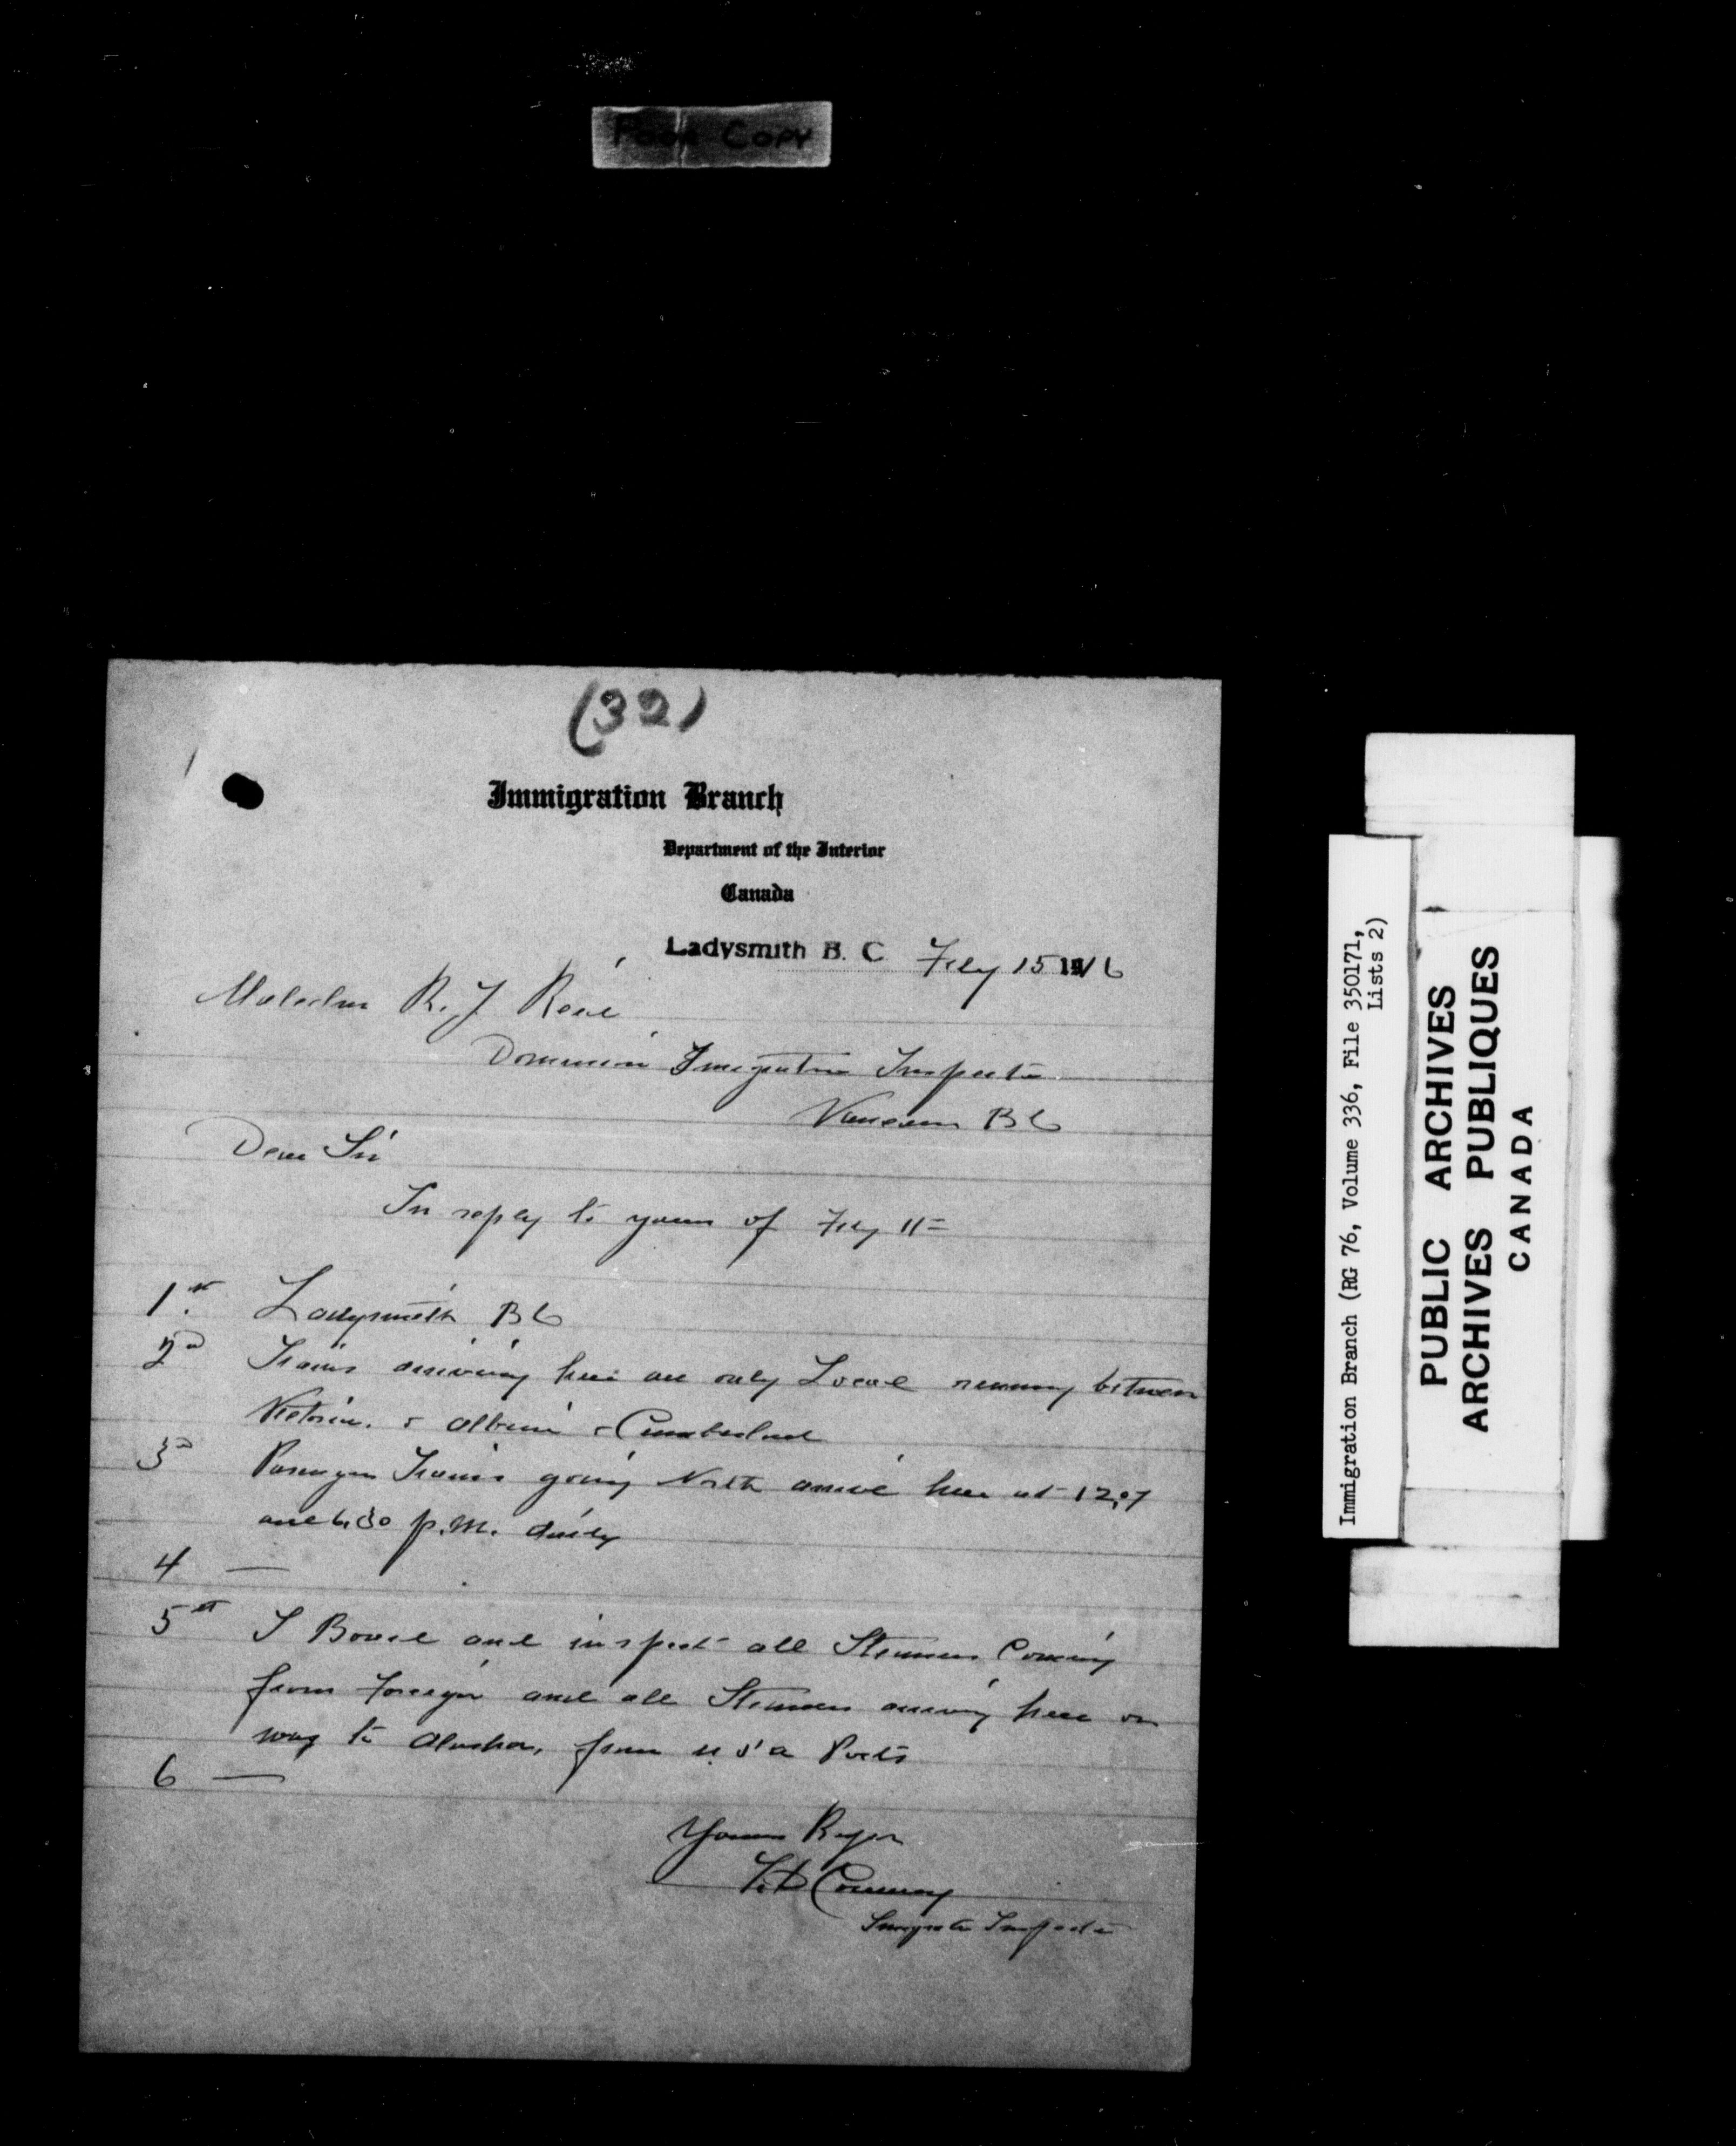 Poor Copy
(32)
Immigration Branch
Department of the Interior
Canada
Ladysmith B. C. Feby 15 1916
Malcolm R. J. Reid
Dominion Imigration Inspector
Vancouver BC
Dear Sir
In reply to yours of Feby 11th
1st Ladysmith BC
2nd Trains arriving here are only Local running between
Victoria. & Alberni & Cumberland
3rd Passenger Trains going North arrive here at 12.07
and 6.30 p.m. daily
4 —
5th I Board and inspect all Steamers Coming
from Foreign and all Steamers arriving here on
way to Alaska, from U.S.A Ports
6 —
Yours Respt
Conway
Imigration Inspector
Immigration Branch (RG 76, Volume 336, File 350171,
Lists 2)
PUBLIC ARCHIVES
ARCHIVES PUBLIQUES
CANADA